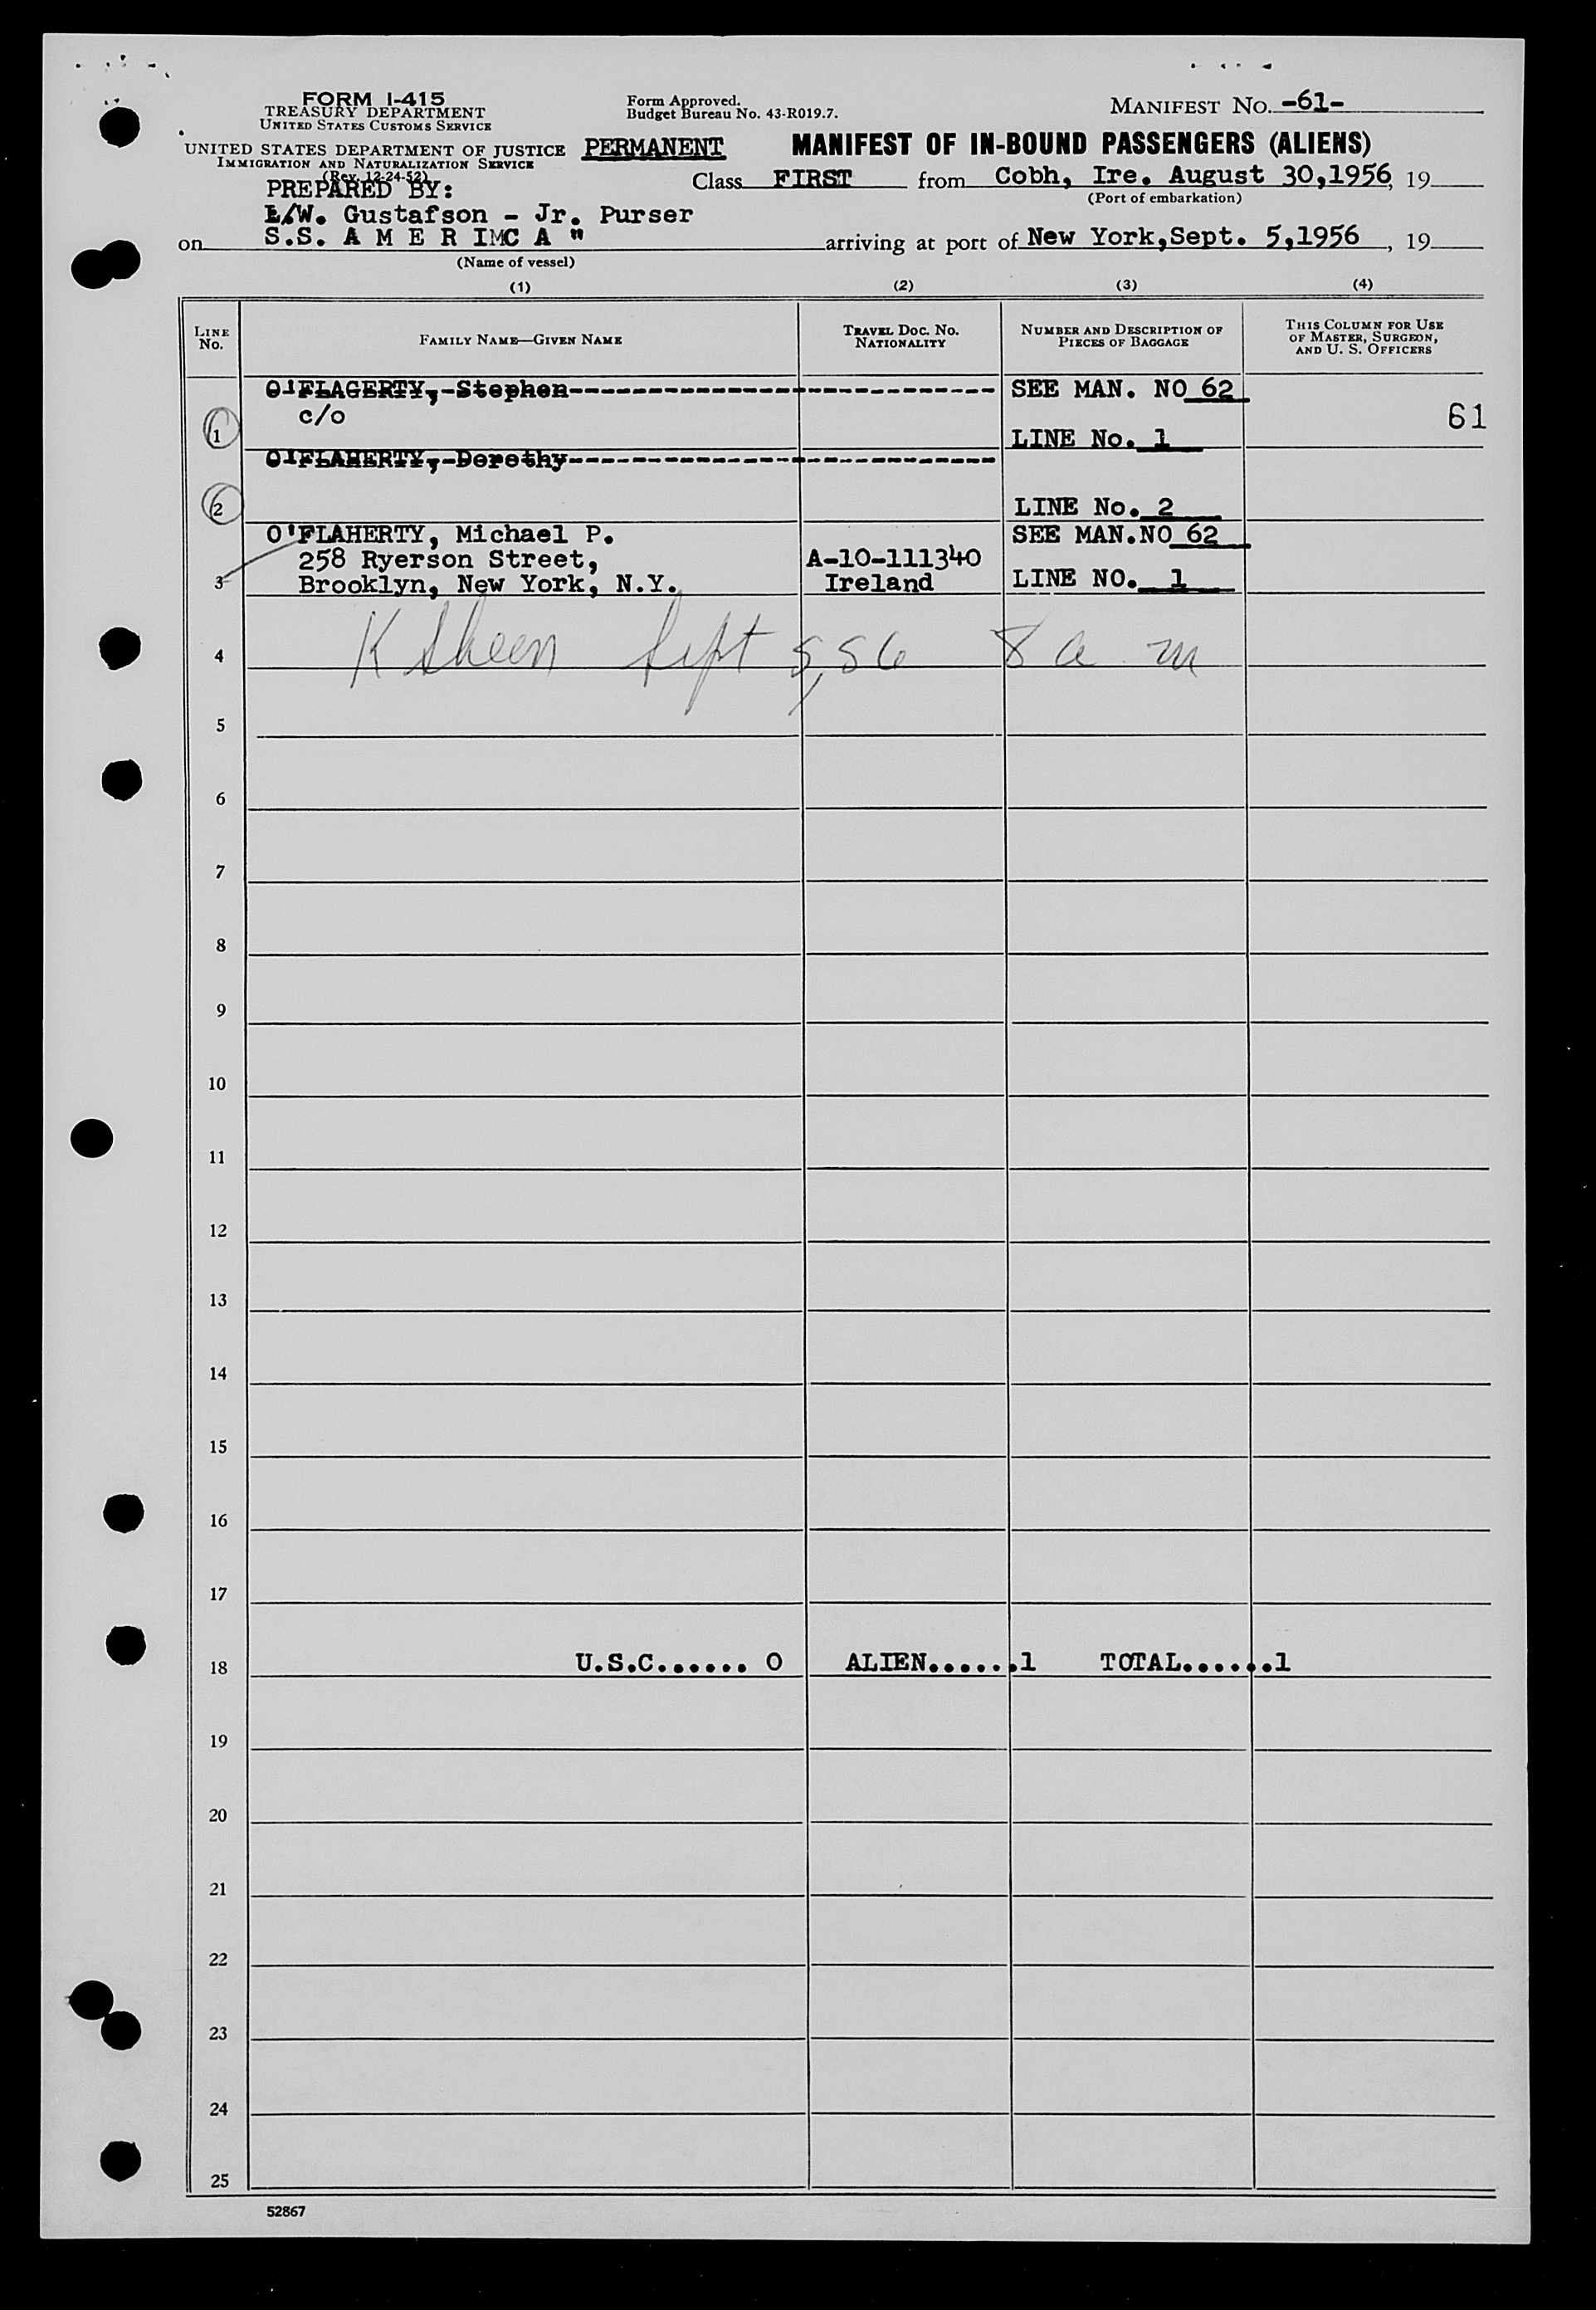 FORM I-415
TREASURY DEPARTMENT
UNITED STATES CUSTOMS SERVICE
UNITED STATES DEPARTMENT OF JUSTICE
IMMIGRATION AND NATURALIZATION SERVICE
(Rev. 12-24-52)
Form Approved.
Budget Bureau No. 43-R019.7.
MANIFEST NO. -61-
PERMANENT MANIFEST OF IN-BOUND PASSENGERS (ALIENS)
PREPARED BY:
Class FIRST from Cobh, Ire. August 30,1956, 19
(Port of embarkation)
L/W. Gustafson - Jr. Purser
on S.S. A M E R I C A " arriving at port of New York, Sept. 5,1956, 19
(Name of vessel)
(1) (2) (3) (4)
LINE NO. FAMILY NAME—GIVEN NAME TRAVEL DOC. NO. NATIONALITY NUMBER AND DESCRIPTION OF PIECES OF BAGGAGE THIS COLUMN FOR USE OF MASTER, SURGEON, AND U. S. OFFICERS
O'FLAGERTY, Stephen SEE MAN. NO 62
c/o 61
1 LINE No. 1
O'FLAHERTY, Dorothy
2 LINE No. 2
O'FLAHERTY, Michael P. SEE MAN.NO 62
258 Ryerson Street, A-10-111340
3 Brooklyn, New York, N.Y. Ireland LINE NO. 1
4 K Skeen Sept 5, 56 8 a m
5
6
7
8
9
10
11
12
13
14
15
16
17
18 U.S.C....... 0 ALIEN......1 TOTAL.......1
19
20
21
22
23
24
25
52867